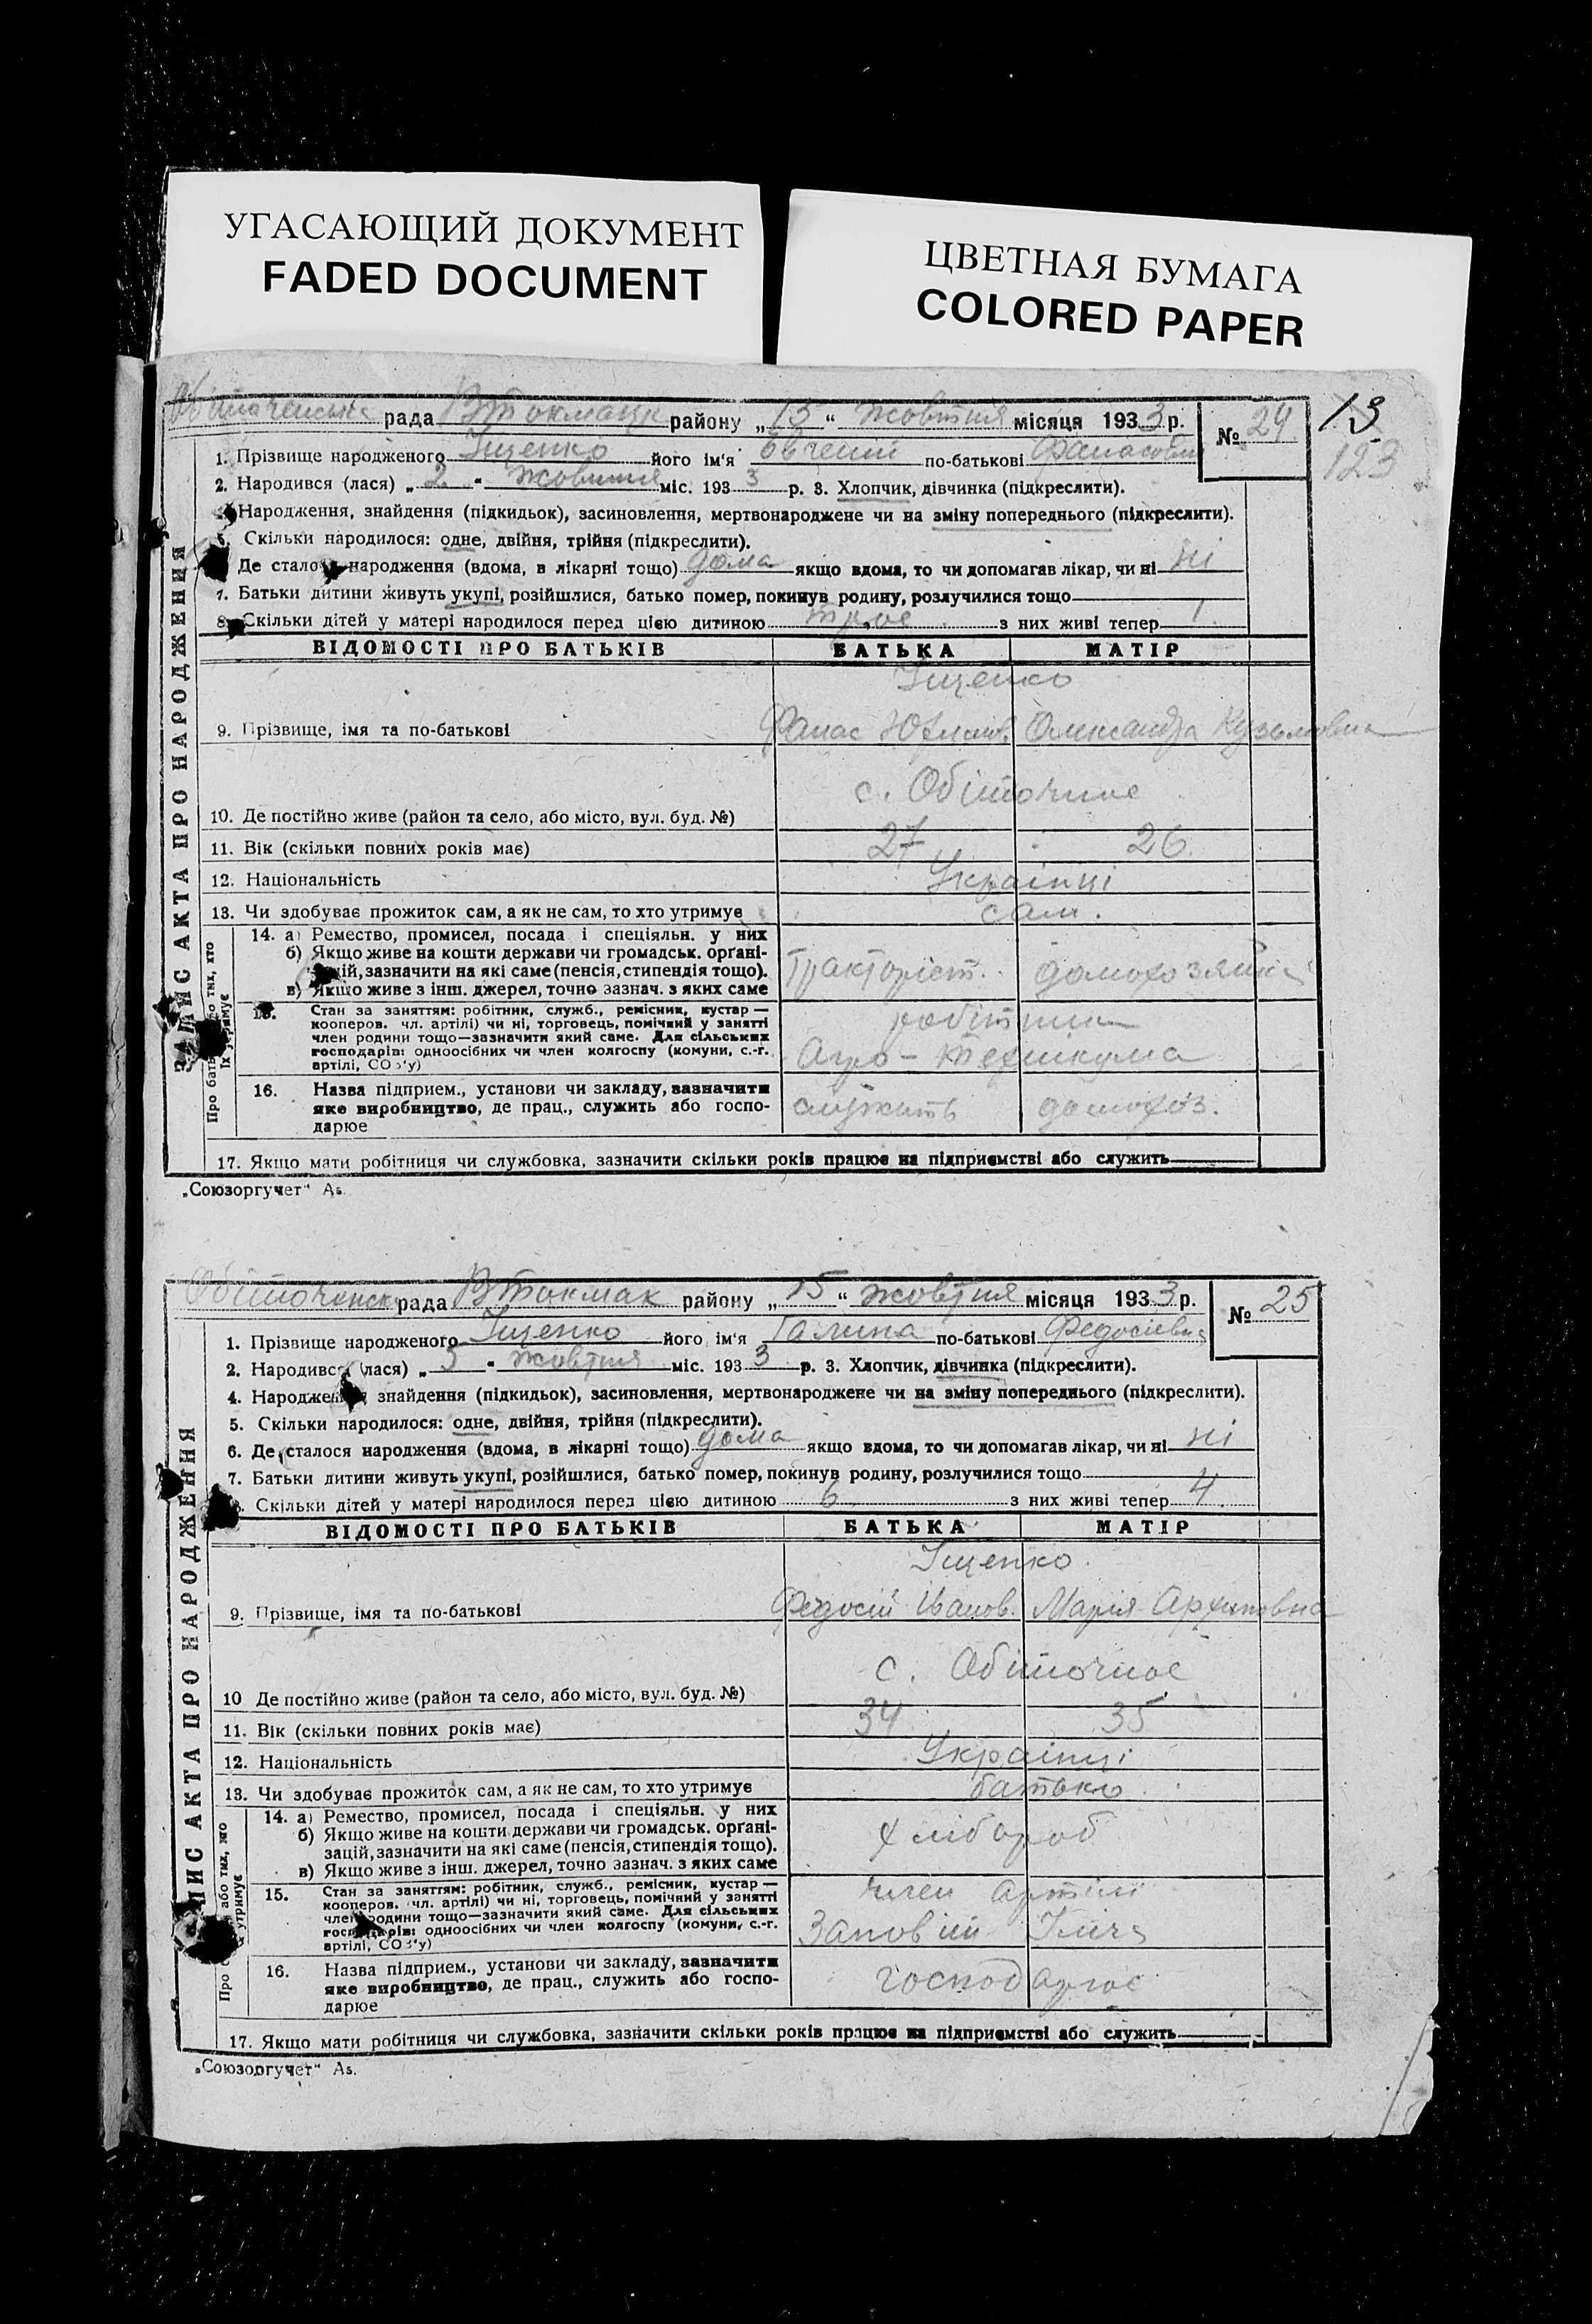 УГАСАЮЩИЙ ДОКУМЕНТ
FADED DOCUMENT
ЦВЕТНАЯ БУМАГА
COLORED PAPER
рада ВТокмацк району „15“ жовтня місяця 1933 р. № 24 13
1. Прізвище народженого Іщенко його ім'я Овгений по-батькові 123
2. Народився (лася) „2“ жовтня міс. 1933 р. 3. Хлопчик, дівчинка (підкреслити).
Народження, знайдення (підкидьок), засиновлення, мертвонароджене чи на зміну попереднього (підкреслити).
Скільки народилося: одне, двійня, трійня (підкреслити).
Де стало народження (вдома, в лікарні тощо) дома якщо вдома, то чи допомагав лікар, чи ні ні
7. Батьки дитини живуть укупі, розійшлися, батько помер, покинув родину, розлучилися тощо
8. Скільки дітей у матері народилося перед цією дитиною троє з них живі тепер 1
ЗАПИС АКТА ПРО НАРОДЖЕННЯ
ВІДОМОСТІ ПРО БАТЬКІВ БАТЬКА МАТІР
Іщенко
9. Прізвище, імя та по-батькові Фанас Олександра Кузьмовна
с. Обіточное
10. Де постійно живе (район та село, або місто, вул. буд. №)
11. Вік (скільки повних років має) 27 26
12. Національність Українці
13. Чи здобуває прожиток сам, а як не сам, то хто утримує сам.
14. а) Ремество, промисел, посада і спеціяльн. у них
б) Якщо живе на кошти держави чи громадськ. орґані-
зацій, зазначити на які саме (пенсія, стипендія тощо). Тракторіст. домохозяйка
в) Якщо живе з інш. джерел, точно зазнач. з яких саме
15. Стан за заняттям: робітник, служб., ремісник, кустар — робітник
кооперов. чл. артілі) чи ні, торговець, помічний у занятті
член родини тощо—зазначити який саме. Для сільських
господарів: одноосібних чи член колгоспу (комуни, с.-г. Агро-техникума
артілі, СОЗ'у)
16. Назва підприєм., установи чи закладу, зазначити
яке виробництво, де прац., служить або госпо- служить домохоз.
дарює
17. Якщо мати робітниця чи службовка, зазначити скільки років працює на підприємстві або служить
„Союзоргучет“ А5.
Обіточенск рада ВТокмак району „15“ жовтня місяця 1933 р. № 25
1. Прізвище народженого Іщенко його ім'я Галина по-батькові Федосієвна
2. Народився (лася) „5“ жовтня міс. 1933 р. 3. Хлопчик, дівчинка (підкреслити).
4. Народження, знайдення (підкидьок), засиновлення, мертвонароджене чи на зміну попереднього (підкреслити).
5. Скільки народилося: одне, двійня, трійня (підкреслити).
6. Де сталося народження (вдома, в лікарні тощо) дома якщо вдома, то чи допомагав лікар, чи ні ні
7. Батьки дитини живуть укупі, розійшлися, батько помер, покинув родину, розлучилися тощо
Скільки дітей у матері народилося перед цією дитиною 6 з них живі тепер 4
ПИС АКТА ПРО НАРОДЖЕННЯ
ВІДОМОСТІ ПРО БАТЬКІВ БАТЬКА МАТІР
Іщенко
9. Прізвище, імя та по-батькові Федосій Іванов. Марія Архиповна
с. Обіточноє
10 Де постійно живе (район та село, або місто, вул. буд. №)
11. Вік (скільки повних років має) 34 35
12. Національність Українці
13. Чи здобуває прожиток сам, а як не сам, то хто утримує батько
14. а) Ремество, промисел, посада і спеціяльн. у них
б) Якщо живе на кошти держави чи громадськ. орґані- хлібороб
зацій, зазначити на які саме (пенсія, стипендія тощо).
в) Якщо живе з інш. джерел, точно зазнач. з яких саме
15. Стан за заняттям: робітник, служб., ремісник, кустар — член артілі
кооперов. чл. артілі) чи ні, торговець, помічний у занятті
член родини тощо—зазначити який саме. Для сільських
господарів: одноосібних чи член колгоспу (комуни, с.-г. Заповіти Ілича
артілі, СОЗ'у)
16. Назва підприєм., установи чи закладу, зазначити
яке виробництво, де прац., служить або госпо- господарює
дарює
17. Якщо мати робітниця чи службовка, зазначити скільки років працює на підприємстві або служить
„Союзоргучет“ А5.